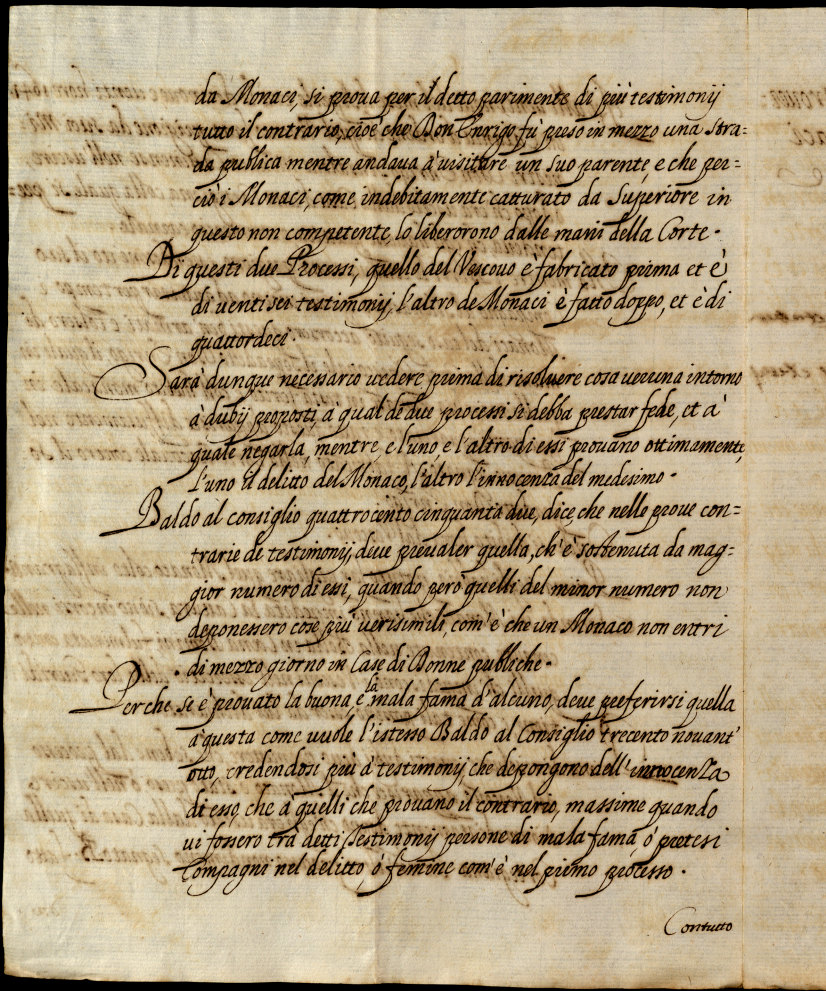 da Monaci, si proua per il detto parimente di più testimonij
tutto il contrario, cioè che Don Enrigo fù preso in mezzo una stra=
da publica mentre andaua à uisitare un suo parente, e che per=
ciò i Monaci, come indebitamente catturato da Superiore in
questo non competente, lo liberorono dalle mani della Corte.
Di questi due Processi, quello del Vescouo è fabricato prima et è
di uenti sei testimonij, l'altro de Monaci è fatto doppo, et è di
quattordeci.
Sarà dunque necessario uedere, prima di risoluere cosa ueruna intorno
à dubij proposti, à qual de due processi si debba prestar fede, et à
quale negarla, mentre, e l'uno e l'altro di essi prouano ottimamente,
l'uno il delitto del Monaco, l'altro l'innocenza del medesimo.
Baldo al consiglio quattrocento cinquanta due, dice, che nelle proue con=
trarie de testimonij, deue preualer quella, ch'è sostenuta da mag=
gior numero di essi, quando però quelli del minor numero non
deponessero cose più uerisimili, com'è che un Monaco non entri
di mezzo giorno in Case di Donne publiche.
Perche se è prouato la buona, e la mala fama d'alcuno, deue preferirsi quella
à questa come uuole l'istesso Baldo al Consiglio trecento nouant'
otto, credendosi più à testimonij, che depongono dell'innocenza
di esso, che à quelli che prouano il contrario, massime quando
ui fossero trà detti Testimonij persone di mala fama ò pretesi
Compagni nel delitto, ò femine com'è nel primo processo.
Contutto